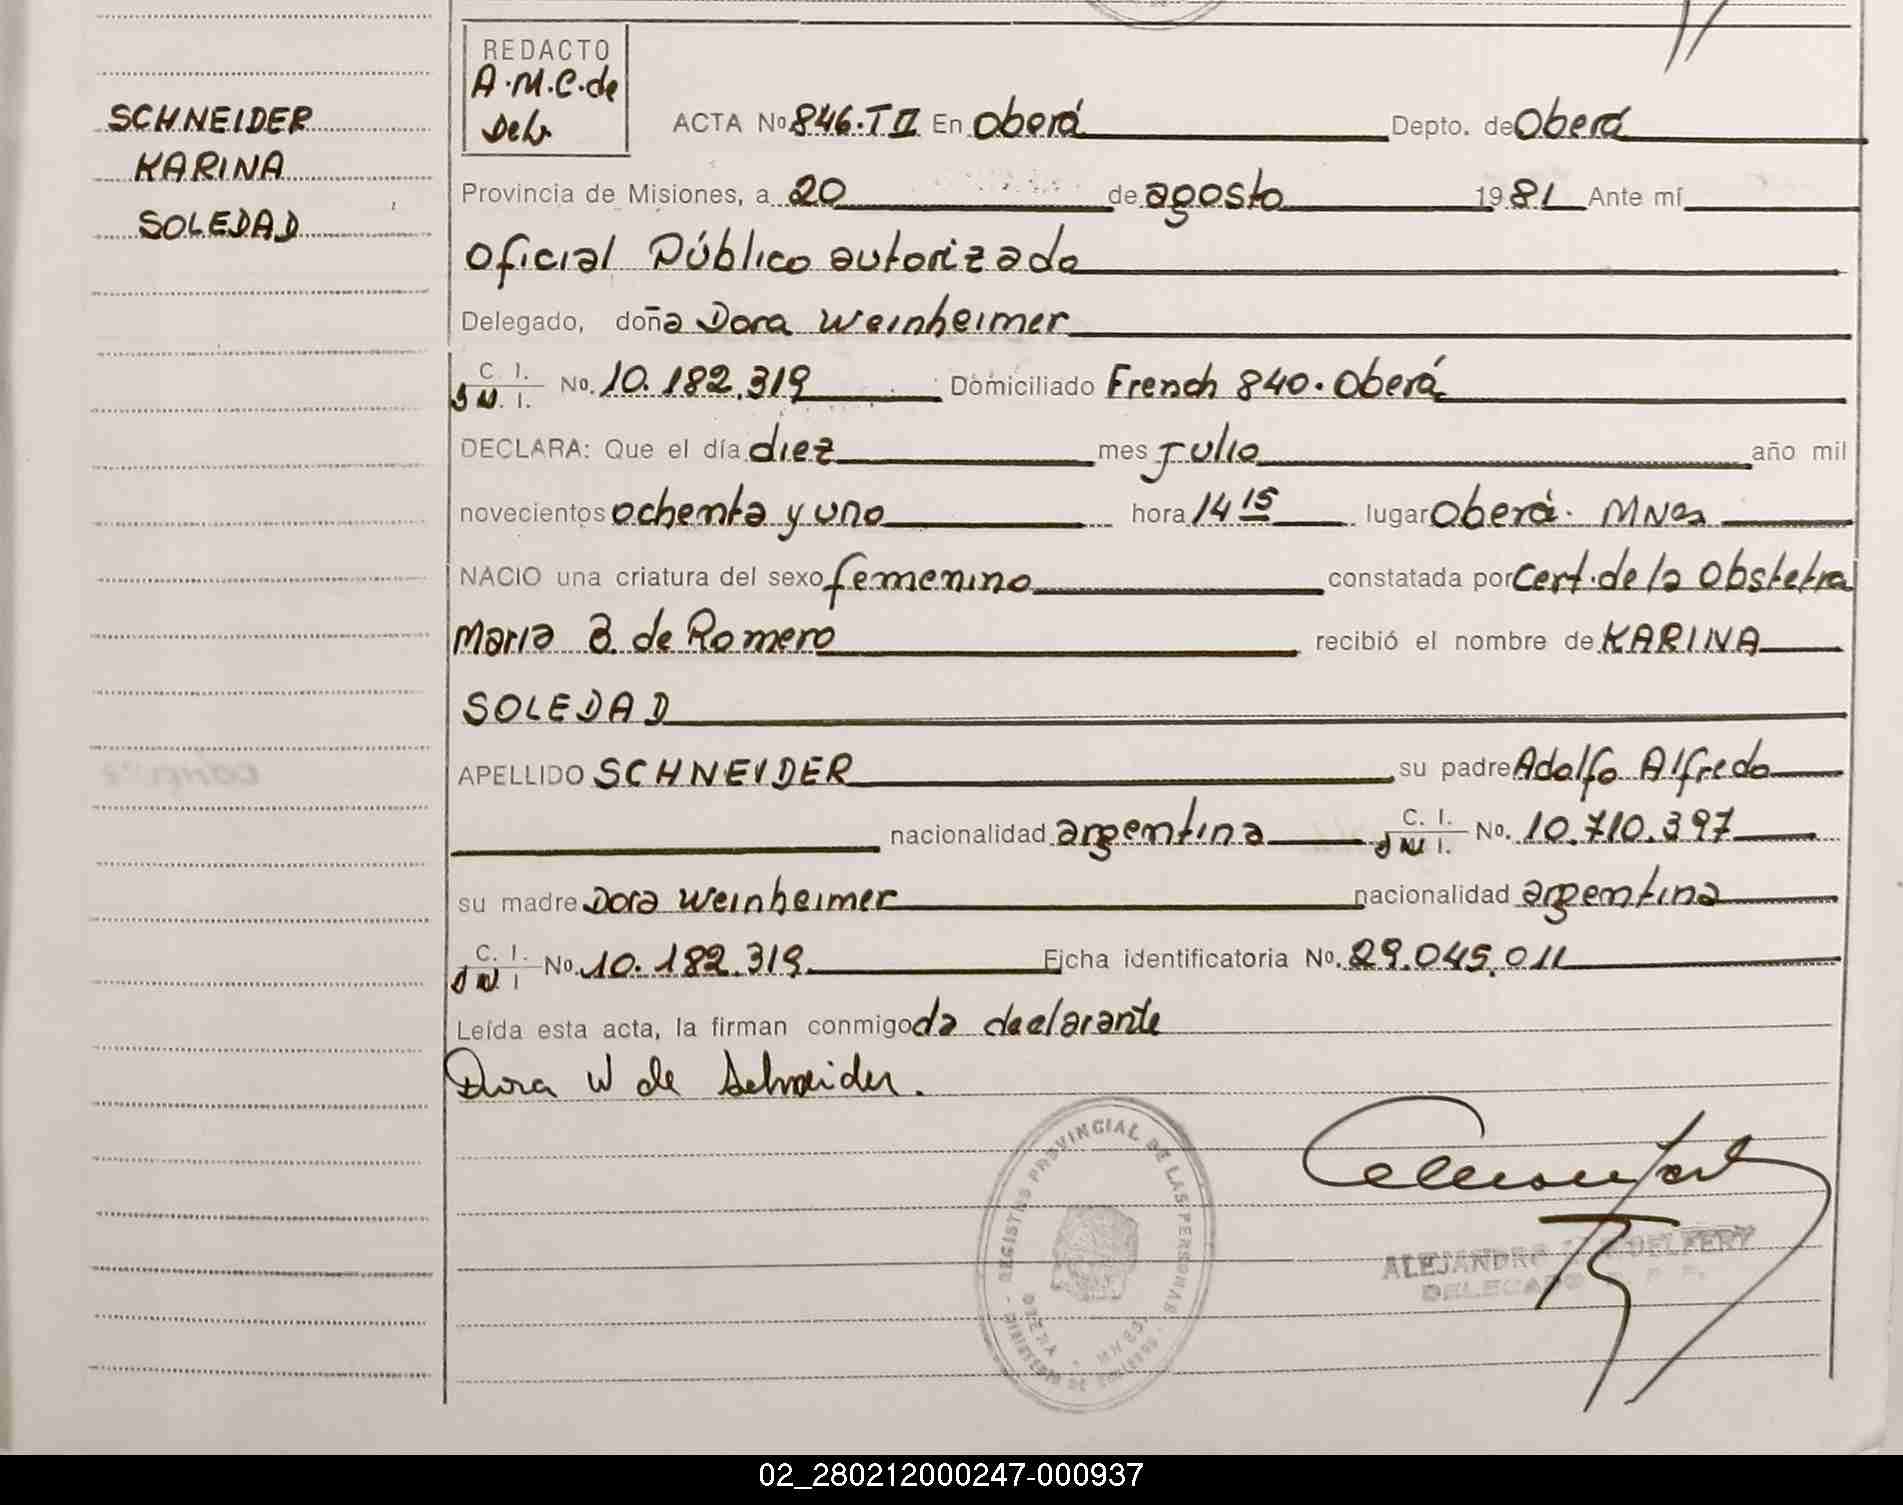 SCHNEIDER
KARINA
SOLEDAD
REDACTO
A.M.C. de
ACTA No 846.T II En Oberá Depto. de Oberá
Provincia de Misiones, a 20 de agosto 1981 Ante mí
Oficial Público autorizado
Delegado, doña Dora Weinheimer
C. I.
No. 10.182.319 Domiciliado French 840. Oberá
DECLARA: Que el día diez mes Julio año mil
novecientos ochenta y uno hora 14 15 lugar Oberá. MNes
NACIO una criatura del sexo femenino constatada por Cert. de la Obstetra
Maria B. de Romero recibió el nombre de KARINA
SOLEDAD
APELLIDO SCHNEIDER su padre Adolfo Alfredo
nacionalidad argentina C. I. No. 10.710.397
su madre Dora Weinheimer nacionalidad argentina
C. I. No. 10.182.319 Ficha identificatoria No. 29.045.011
Leída esta acta, la firman conmigo la declarante
Dora W de Schneider.
REGISTRO PROVINCIAL DE LAS PERSONAS
OBERA
ALEJANDRO
DELEGADO
02_280212000247-000937